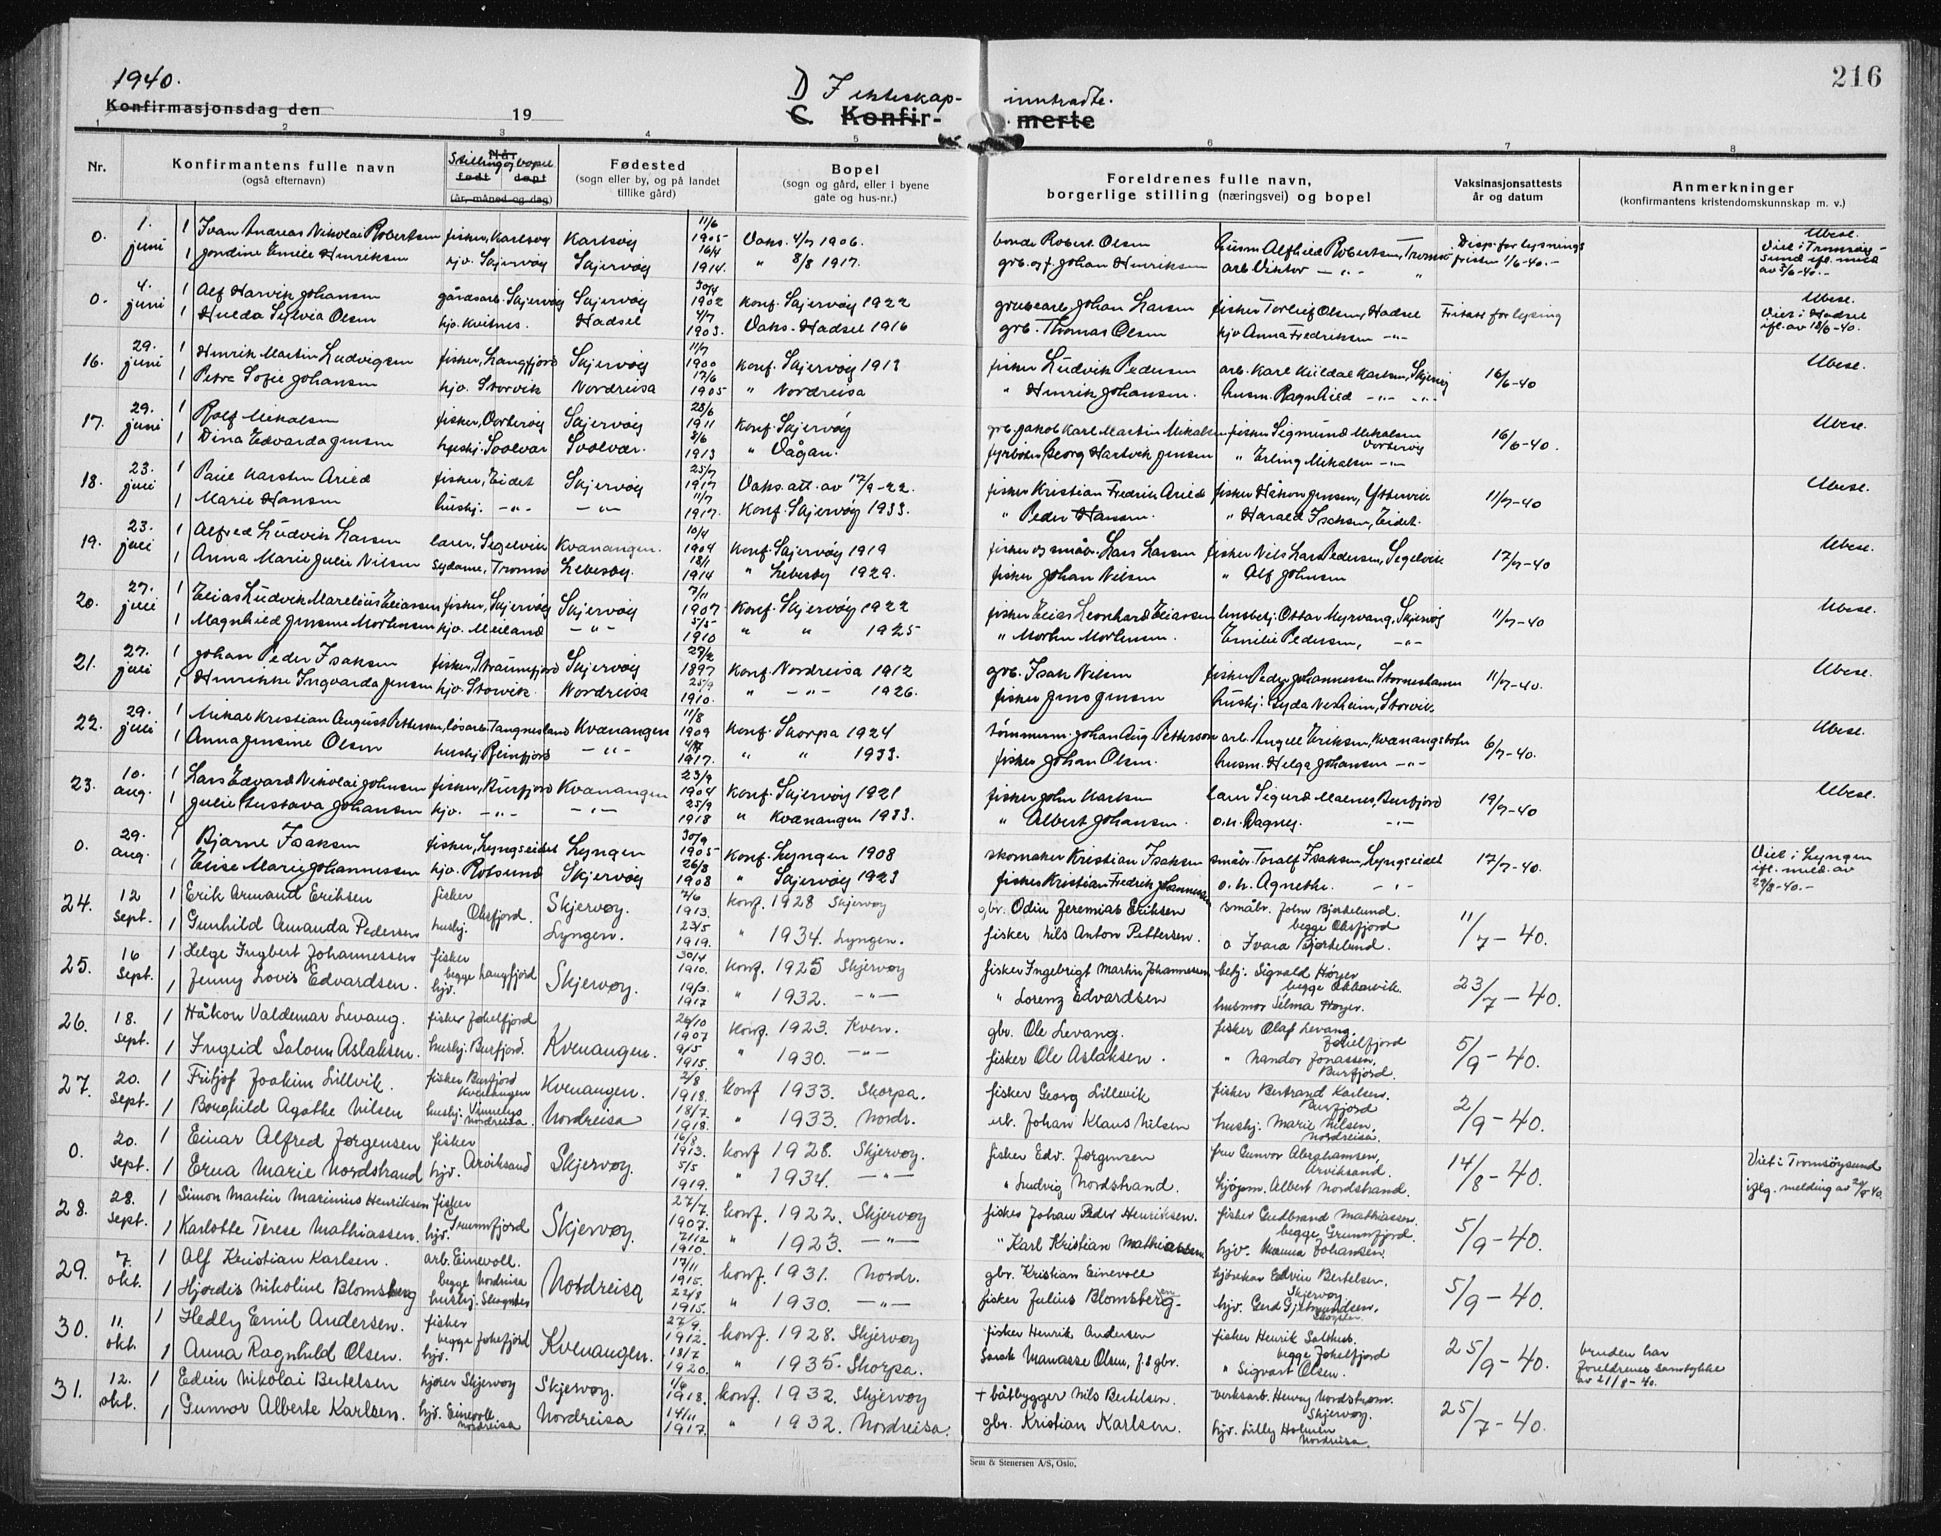 1940.
216
D I ekteskap- inntrådte.
Konfirmasjonsdag den 19
C. Konfir- merte
1 2 3 4 5 6 7 8
Nr. Konfirmantens fulle navn (også efternavn) Når født døpt (år, måned og dag) Stilling og bopel Fødested (sogn eller by, og på landet tillike gård) Bopel (sogn og gård, eller i byene gate og hus-nr.) Foreldrenes fulle navn, borgerlige stilling (næringsvei) og bopel Vaksinasjonsattests år og datum Anmerkninger (konfirmantens kristendomskunnskap m. v.)
0. 1. juni 1 Ivar Andreas Nikolai Robertsen fisker, Karlsøy Karlsøy 11/6 1905 Vaks. 4/7 1906. bonde Robert Olsen husm. Alfhild Robertsen, Tromsø Disp. for lysnings fristen 1/6-40.- Ubesl. Viet i Tromsøysund ifl. meld av 3/6-40.-
1 Jordine Emilie Henriksen hjv. Skjervøy Skjervøy 16/4 1914. " 8/8 1917. grb. og f. Johan Henriksen arb. Viktor -"- "
0. 4. juni 1 Alf Harvik Johansen gårdsarb. Skjervøy Skjervøy 30/4 1902 Konf. Skjervøy 1922 Johan Larsen fisker Torleif Olsen, Hadsel Fritatt for lysing Ubesl. Viet i Hadsel ifl. av 18/6-40.
1 Hulda Sylvia Olsen hjv. Kvitnes. Hadsel 4/7 1903. Vaks. Hadsel 1916 grb. Thomas Olsen hjv Anna Fredriksen -"-
16. 29. juni 1 Henrik Martin Ludvigsen fisker, Langfjord Skjervøy 11/7 1900 Konf. Skjervøy 1913 fisker Ludvik Pedersen arb. Karl Kildal Karlsen, Skjervøy 16/6-40 Ubesl.
1 Petra Sofie Johansen hjv. Storvik Nordreisa 17/6 1905 " Nordreisa " Henrik Johansen. husm. Ragnhild -"- -"-
17. 29. juni 1 Rolf Mikalsen fisker, Vorterøy Skjervøy 28/6 1911 Konf. Skjervøy grb. Jakob Karl Martin Mikalsen fisker Sigmund Mikalsen Vorterøy 16/6-40. Ubesl.
1 Dina Edvarda Jensen hushj. Svolvær Svolvær. 2/6 1913 " Vågan. fyrbøter Georg Hartvik Jensen " Erling Mikalsen -"-
18. 23. juli 1 Paul Karsten Arild fisker, Eidet Skjervøy 25/7 1917 Vaks. att. av 17/9-22. fisker Kristian Fredrik Arild fisker Håkon Jensen, Yttervik 11/7-40 Ubesl.
1 Marie Hansen hushj. -"- -"- 11/7 1917. Konf. Skjervøy 1933. " Peder Hansen. " Harald Isaksen, Eidet.
19. 23. juli 1 Alfred Ludvik Larsen lærer, Segelvik Kvænangen. 10/4 1904 Konf. Skjervøy 1919 fisker og småbr. Lars Larsen fisker Nils Lars Pedersen, Segelvik 17/7-40 Ubesl.
1 Anna Marie Julie Nilsen sydame, Tromsø Lebesby. 18/1 1914 " Lebesby 1929. fisker Johan Nilsen " Alf Johnsen
20. 27. juli 1 Elias Ludvik Marelius Eliassen fisker, Skjervøy Skjervøy 7/11 1907 Konf. Skjervøy 1922 fisker Elias Leonhard Eliassen Ottar Myrvang, Skjervøy 11/7-40 Ubesl.
1 Magnhild Jensine Mortensen hjv. Meiland -"- 5/5 1910 " " 1925 " Morten Mortensen. Emilie Pedersen, -"-
21. 27. juli 1 Johan Peder Isaksen fisker, Straumfjord Skjervøy 27/2 1897 Konf. Nordreisa 1912 grb. Isak Nilsen fisker Peder Johannessen 11/7-40. Ubesl.
1 Henrikke Ingvarda Jensen hjv. Storvik. Nordreisa 25/9 1910. " -"- 1926. fisker Jens Jensen hushj. Lyda Storvik.
22. 29. juli 1 Mikal Kristian August Pettersen, løsarb. Tangnesland Kvænangen 11/8 1909 Konf. Skorpa 1924 tømmerm. Johan Aug. Pettersen arb. Angell Eriksen, Kvænangsbotn 6/7-40. Ubesl.
1 Anna Jensine Olsen hushj. Reinfjord -"- 4/7 1917. " " 1933. fisker Johan Olsen. husm. Helga Johansen -"-
23. 10. aug. 1 Lars Edvard Nikolai Johnsen fisker, Burfjord Kvænangen 23/9 1904 Konf. Skjervøy 1921 fisker John Karlsen lærer Sigurd Malnes, Burfjord 19/7-40 Ubesl.
1 Julie Gustava Johansen hjv. -"- -"- 25/9 1918 " Kvænangen 1933. " Albert Johansen. o.h. Dagny. -"-
0. 29. aug. 1 Bjarne Isaksen fisker, Lyngseidet Lyngen 30/9 1905 Konf. Lyngen 1908 skomaker Kristian Isaksen småbr. Toralf Isaksen, Lyngseidet 17/7-40. Viet i Lyngen ifl. meld. av 29/8-40.-
1 Elise Marie Johannessen hjv. Rotsund Skjervøy 26/3 1908 " Skjervøy 1923 fisker Kristian Fredrik Johannessen o. h. Agnethe. -"-
24. 12 Sept. 1 Erik Armand Eriksen fisker Oksfjord. Skjervøy. 7/6 1913. konf. 1928 Skjervøy gbr. Odin Jeremias Eriksen småbr. John Bjørkelund. begge Oksfjord 11/7-40.
1 Gunhild Amanda Pedersen hushj. Lyngen. 23/5 1919. " 1934. Lyngen. fisker Nils Anton Pettersen. o Ivara Bjørkelund.
25. 16 Sept. 1 Helge Ingbert Johannessen fisker begge Langfjord Skjervøy. 30/4 1910. konf. 1925 Skjervøy fisker Ingebrigt Martin Johannessen betj. Sigvald Høyer begge Akkarvik. 23/7-40.
1 Jenny Lovis Edvardsen. hjv. 19/3. 1917 " 1932. -"- " Lorenz Edvardsen husmor Selma Høyer.
26. 18. Sept. 1 Håkon Valdemar Levang. fisker Jøkelfjord Kvenangen. 26/10 1907 konf. 1923. Kven. gbr. Ole Levang. fisker Olaf Levang. Jøkelfjord 5/9-40.
1 Ingrid Salom Aslaksen. hushj. Burfjord. 9/5 1915. " 1930. -"- fisker Ole Aslaksen. " Nandor Jonassen, Burfjord.
27. 20. Sept. 1 Fritjof Joakim Lillevik. fisker Burfjord Kvenangen Kvenangen. 2/8 1918. konf 1933. Skorpa. fisker Georg Lillevik fisker Bertrand Karlsen. Burfjord 2/9-40.
1 Borghild Agathe Nilsen hushj. Vinnelys Nordreisa. Nordreisa 18/7. 1918. " 1933. Nordr. arb. Johan Klaus Nilsen hushj. Marie Nilsen, Nordreisa.
0. 20. Sept. 1 Einar Alfred Jørgensen fisker Arviksand Skjervøy. 16/8 1913. konf 1928. Skjervøy. fisker Edv. Jørgensen fru Gunvor Abrahamsen, Arviksand. 14/8-40. Viet i Tromsøysund iflg. melding av 24/9-40.
1 Erna Marie Nordstrand hjv. 5/5 1919. " 1934. -"- " Ludvig Nordstrand. kjøpm. Albert Nordstrand.
28. 28. Sept. 1 Simon Martin Marinius Henriksen fisker Grunnfjord Skjervøy. 27/7. 1907. konf. 1922. Skjervøy fisker Johan Peder Henriksen. fisker Gudbrand Mathiassen. begge Grunnfjord. 5/9-40.
1 Karlotte Terese Mathiassen. hjv. 7/12 1910. " 1923. -"- " Karl Kristian Mathiassen hjv. Johansen.
29. 7. okt. 1 Alf Kristian Karlsen. arb. Einevoll. begge Nordreisa Nordreisa 17/11 1915. konf. 1931. Nordr. gbr. Kristian Einevoll Edvin Bertelsen. Skjervøy 5/9-40.
1 Hjørdis Nikoline Blomsberg hushj. 22/8 1915. " 1930. -"- fisker Julius Blomsberg. hjv. Gerd Gjetmundsen,
30. 11. okt. 1 Hedly Emil Andersen. fisker begge Jøkelfjord Kvenangen. 27/9. 1912. konf. 1928. Skjervøy fisker Henrik Andersen fisker Henrik begge Jøkelfjord 25/9-40. bruden har foreldrenes samtykke av 21/8-40.
1 Anna Ragnhild Olsen. hjv. 18/7 1920. " 1935. Skorpa. Sarak Manasse Olsen, f.s gbr. " Sigvart Olsen.
31. 12. okt. 1 Edvin Nikolai Bertelsen kjører Skjervøy Skjervøy. 1/6 1918. konf. 1932. Skjervøy + båtbygger Nils Bertelsen. verksarb. Henry Nordstrøm. Skjervøy. 25/7-40.
1 Gunnor Alberte Karlsen. hjv. Einevoll Nordreisa Nordreisa 14/11 1917. " 1932. Nordreisa. gbr. Kristian Karlsen. hjv. Lilly Holmen Nordreisa.
Sem & Stenersen A/S, Oslo.